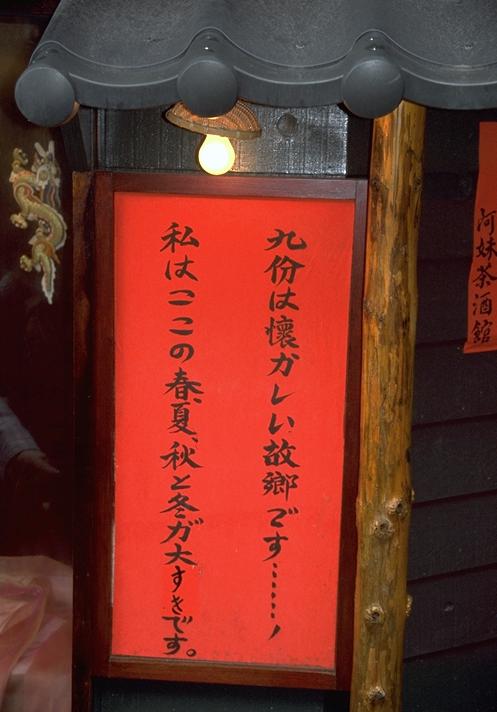 九份は懷ガしい故鄉です……!
私はここの春、夏、秋と冬ガ大すきです。
阿妹茶酒館